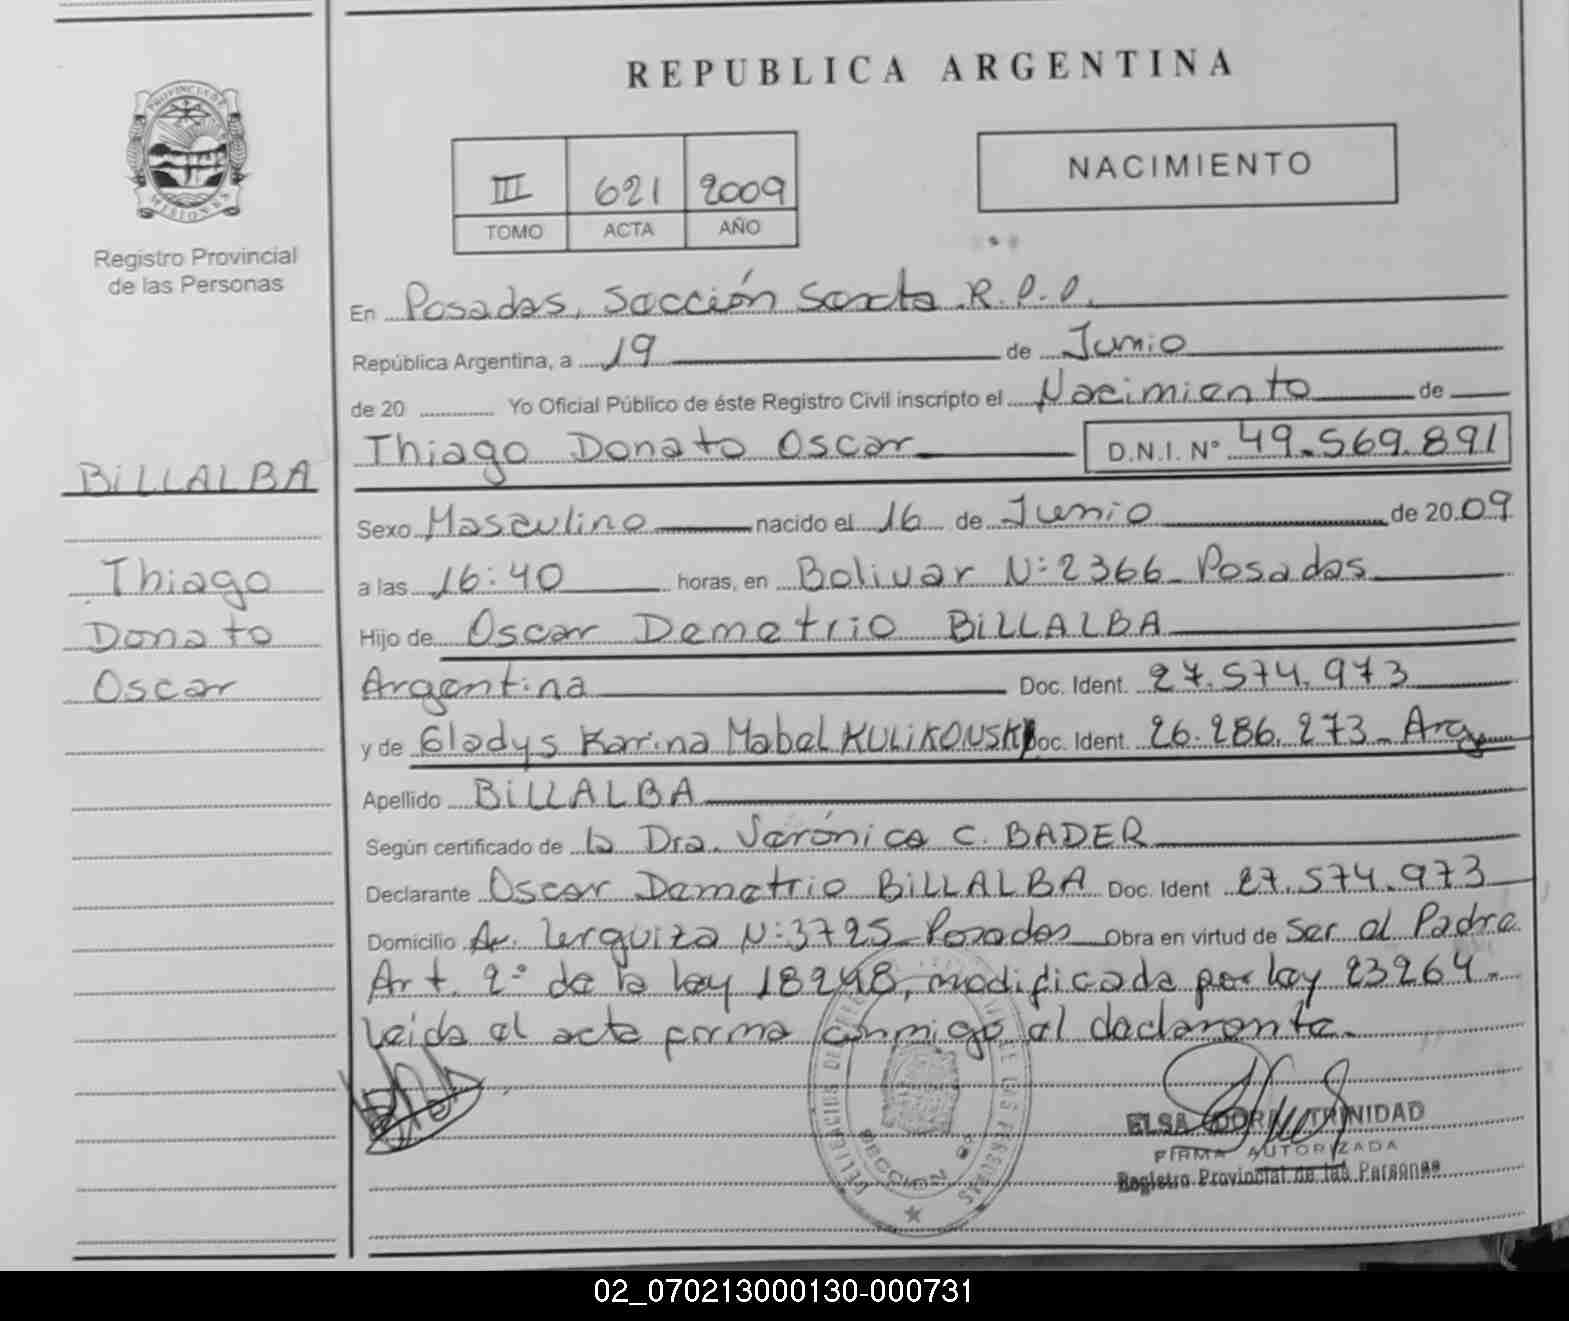 REPUBLICA ARGENTINA
PROVINCIA DE MISIONES
Registro Provincial
de las Personas
III 621 2009
TOMO ACTA AÑO
NACIMIENTO
En Posadas, Sección Sexta R.P.P.
República Argentina, a 19 de Junio
de 20 Yo Oficial Público de éste Registro Civil inscripto el Nacimiento de
Thiago Donato Oscar D.N.I. Nº 49.569.891
BiLLALBA
Sexo Masculino nacido el 16 de Junio de 20 09
Thiago
Donato
Oscar
a las 16:40 horas, en Bolivar N: 2366 - Posadas
Hijo de Oscar Demetrio BiLLALBA
Argentina Doc. Ident. 27.574.973
y de Gladys Karina Mabel KULiKOUSKi Doc. Ident. 26.286.273 - Arg
Apellido BiLLALBA
Según certificado de la Dra. Verónica C. BADER
Declarante Oscar Demetrio BiLLALBA Doc. Ident 27.574.973
Domicilio Av. N: 3795 - Posadas Obra en virtud de ser el Padre.
Art. 2º de la ley 18248, modificada por ley 23264 -
Leida el acta firma conmigo el declarante.
SECCION 6ª
ELSA DORA TRINIDAD
FIRMA AUTORIZADA
Registro Provincial de las Personas
02_070213000130-000731